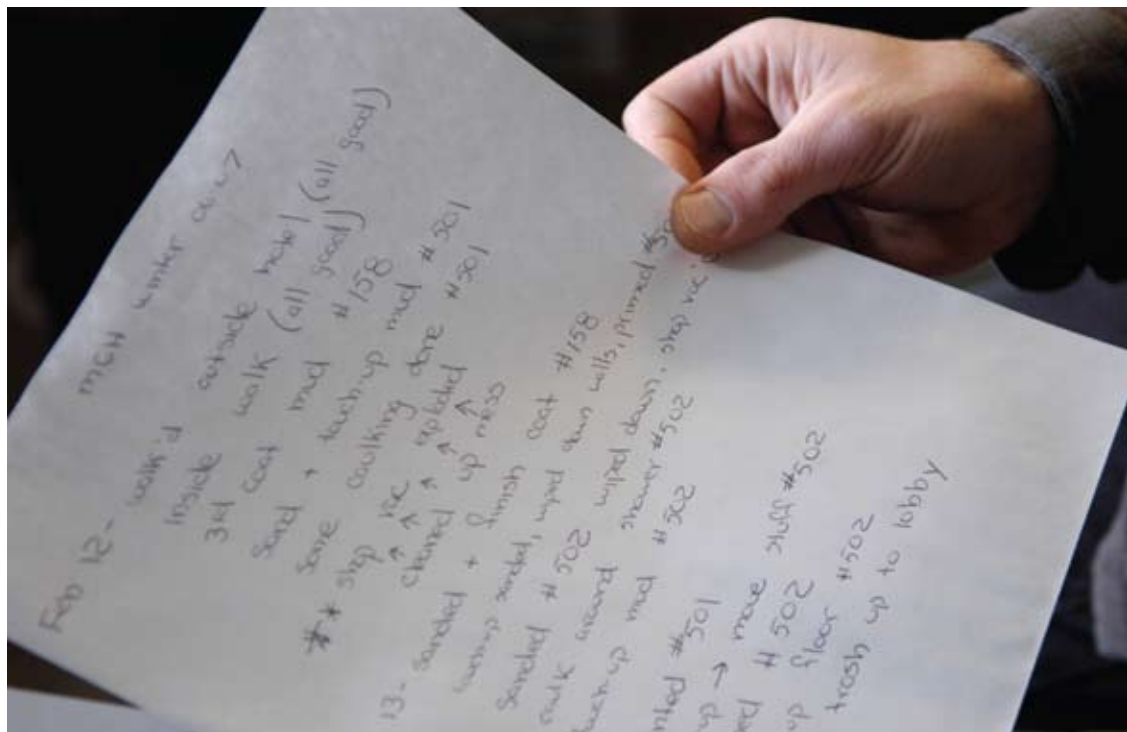 MGH winter 06-07
Feb 12- walk'd outside hotel (all good)
Inside walk (all good)
3rd coat mud #158
Sand + touch-up mud #501
Some caulking done #501
** shop vac exploded
↑ ↑ ↑ ↑ ↑
cleaned up mess
13- Sanded + finish coat #158
sanded, wiped down walls, primed
Sanded #502 wiped down, shop vac.
caulk around shower #502
touch up mud #502
#501
up → move stuff #502
#502
up floor #502
trash up to lobby